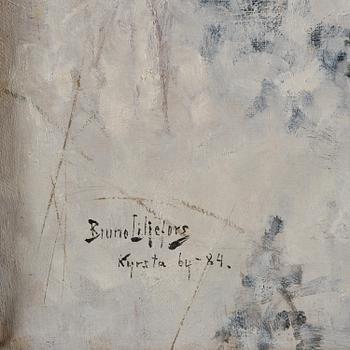 Bruno Liljefors
Kyrsta by-84.